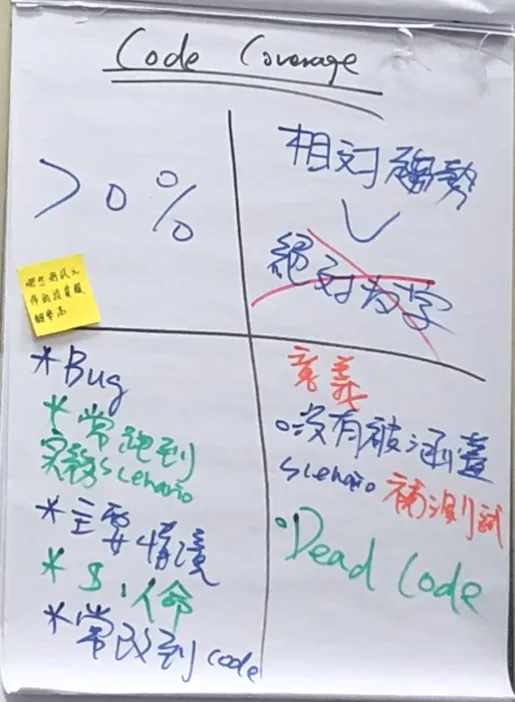 Code Coverage
>0%
相对趨勢
絕对数字
哪些測試元
件的投資報
酬率高
*Bug
*常跑到
実務Scenario
*主要情境
*$.人命
*常改到code
意義
○沒有被涵蓋
Scenario 補測試
•Dead Code